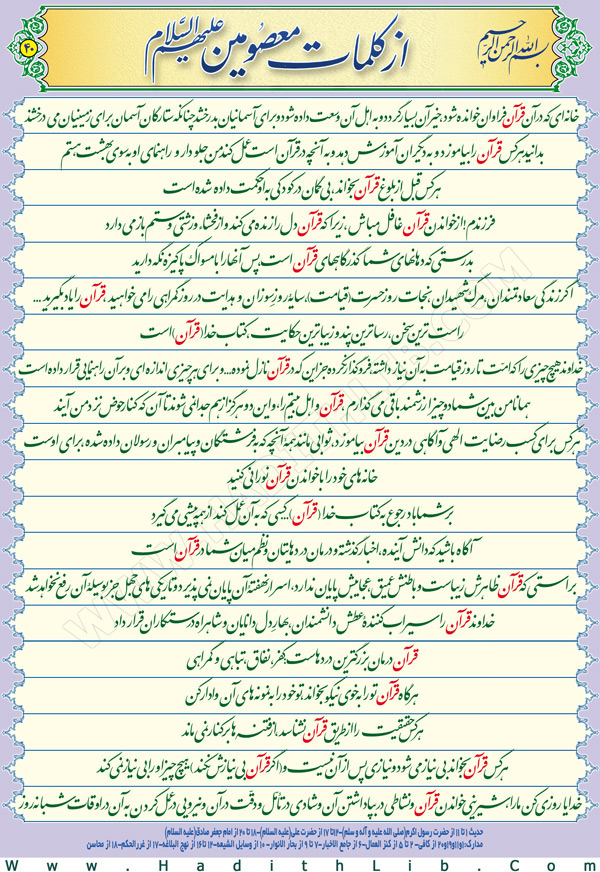 بسم الله الرحمن الرحیم
از کلمات معصومین علیهم السلام
۴۰
خانه ای که در آن قرآن فراوان خوانده شود، خیر آن بسیار گردد و به اهل آن وسعت داده شود و برای آسمانیان بدرخشد چنانکه ستارگان آسمان برای زمینیان می درخشند
بدانید هرکس قرآن را بیاموزد و به دیگران آموزش دهد و به آنچه در قرآن است عمل کند من جلودار و راهنمای او به سوی بهشت هستم
هرکس قبل از بلوغ قرآن بخواند، بی گمان در کودکی به او حکمت داده شده است
فرزندم! از خواندن قرآن غافل مباش، زیرا که قرآن دل را زنده می کند و از فحشا، و زشتی و ستم باز می دارد
بدرستی که دهانهای شما گذرگاههای قرآن است، پس آنها را با مسواک پاکیزه نگه دارید
اگر زندگی سعادتمندان، مرگ شهیدان، نجات روز حسرت (قیامت)، سایه روز سوزان و هدایت در روز گمراهی را می خواهید، قرآن را یاد بگیرید ...
راست ترین سخن، رساترین پند و زیباترین حکایت، کتاب خدا (قرآن) است
خداوند هیچ چیزی را که امت تا روز قیامت به آن نیاز داشته فروگذار نکرده جز این که در قرآن نازل نموده... و برای هر چیزی اندازه ای و بر آن راهنمایی قرار داده است
همانا من بین شما دو چیز ارزشمند باقی می گذارم: قرآن و اهل بیتم را، و این دو هرگز از هم جدا نمی شوند تا آن که کنار حوض نزد من آیند
هرکس برای کسب رضایت الهی و آگاهی در دین قرآن بیاموزد، ثوابی مانند همه آنچه که به فرشتگان و پیامبران و رسولان داده شده، برای اوست
خانه های خود را با خواندن قرآن نورانی کنید
بر شما باد رجوع به کتاب خدا (قرآن)، کسی که به آن عمل کند از همه پیشی می گیرد
آگاه باشید که دانش آینده، اخبار گذشته و درمان دردهایتان و نظم میان شما در قرآن است
براستی که قرآن ظاهرش زیباست و باطنش عمیق، عجایبش پایان ندارد، اسرار نهفتهٔ آن پایان نمی پذیرد و تاریکی های جهل جز بوسیلهٔ آن رفع نخواهد شد
خداوند قرآن را سیراب کنندهٔ عطش دانشمندان، بهار دل دانایان و شاهراه درستکاران قرار داد
قرآن درمان بزرگترین دردهاست: کفر، نفاق، تباهی و گمراهی
هرگاه قرآن تو را به خوی نیکو بخواند، تو خود را به نمونه های آن وادار کن
هرکس حقیقت را از طریق قرآن نشناسد، از فتنه ها برکنار نمی ماند
هرکس قرآن بخواند بی نیاز می شود و نیازی پس از آن نیست و (اگر قرآن بی نیازش نکند) هیچ چیز او را بی نیاز نمی کند
خدایا روزی کن ما را شیرینی خواندن قرآن و نشاطی در بپا داشتن آن و شادی در تأمل و دقت در آن و نیرویی در عمل کردن به آن در اوقات شبانه روز
حدیث ۱ تا ۱۱ از حضرت رسول اکرم(صلی الله علیه و آله و سلم)-۱۲ تا ۱۷ از حضرت علی(علیه السلام)-۱۸ تا ۲۰ از امام جعفر صادق(علیه السلام)
مدارک:۱و۱۱و۱۹و۲۰ از کافی-۲ تا ۵ از کنز العمال-۶ از جامع الاخبار-۷ تا ۹ از بحار الانوار-۱۰ از وسایل الشیعه-۱۲ تا ۱۶ از نهج البلاغه-۱۷ از غررالحکم-۱۸ از محاسن
www.HadithLib.Com